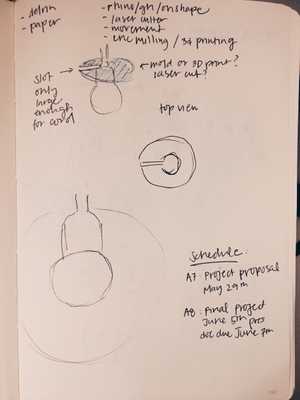 - delrin
- paper
- rhino/gh/onshape
- laser cutter
- movement
- cnc milling / 3d printing
slot
only
large
enough
for cord
← mold or 3D print?
laser cut?
top view
schedule:
A7: Project proposal
May 29th
A8: Final Project
June 5th pres
doc due June 7th